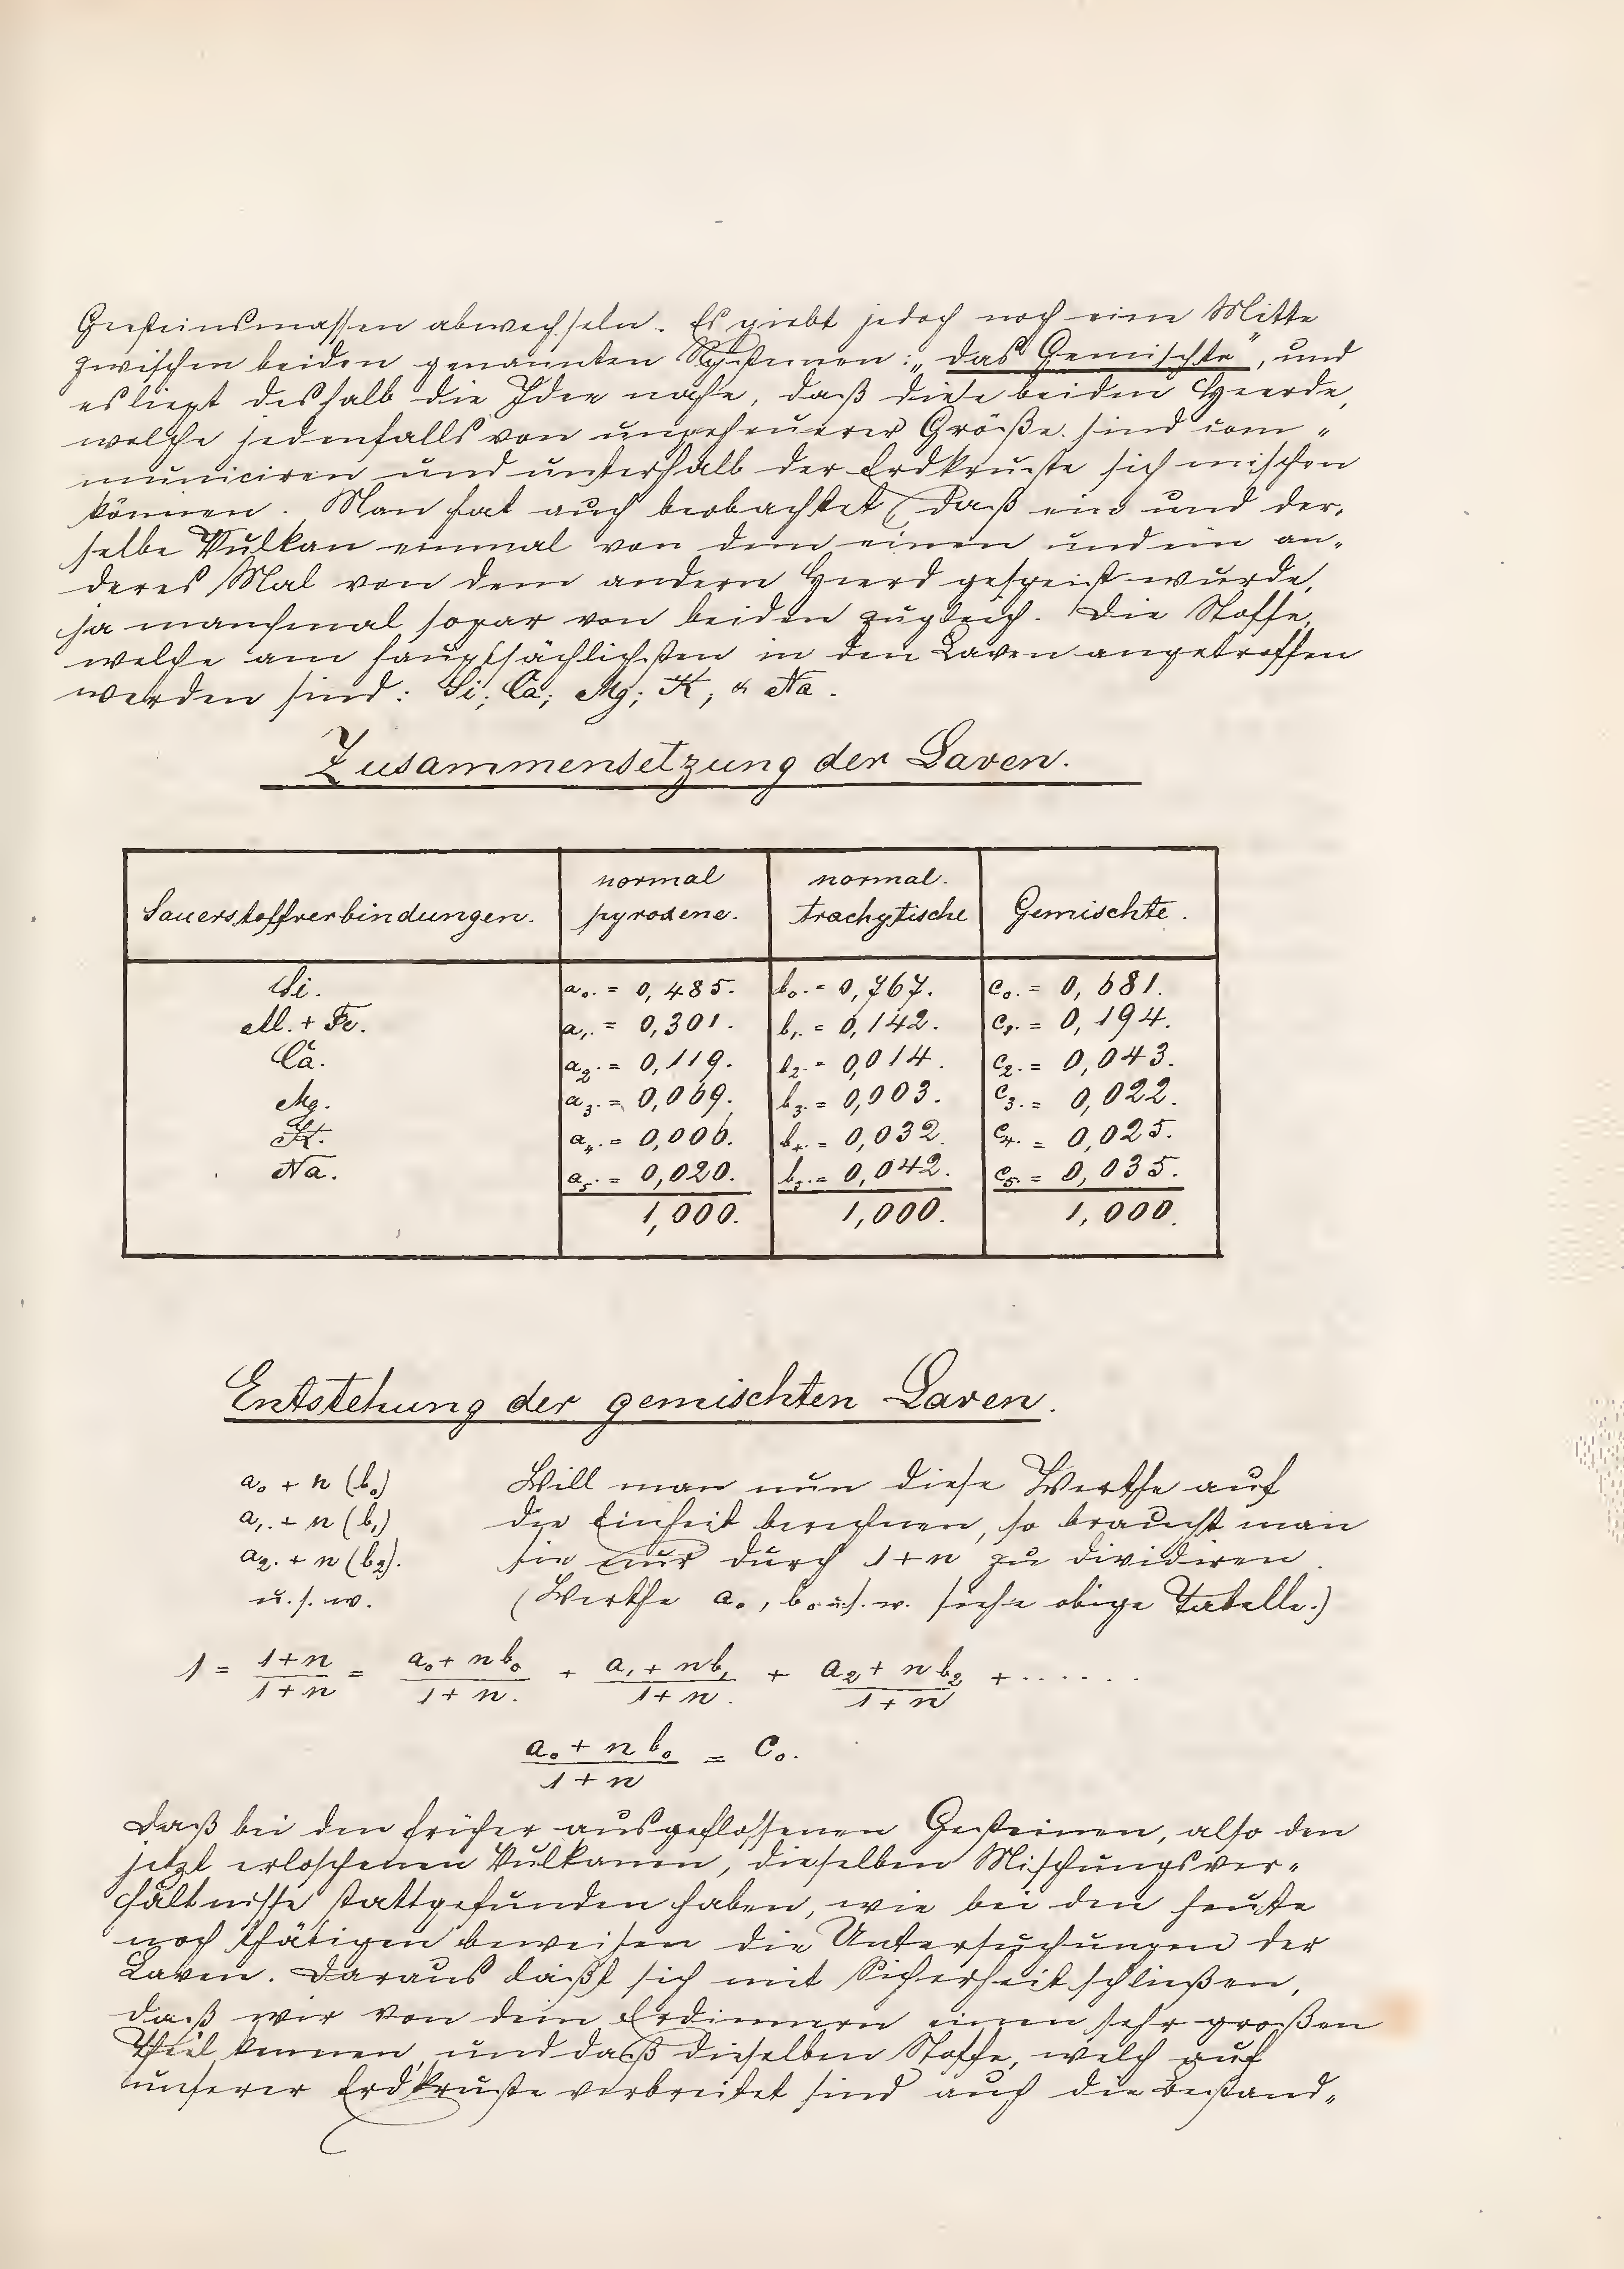 Gesteinsmassen abwechseln. Es giebt jedoch noch eine Mitte
zwischen beiden genannten Systemen: „das Gemischte", und
es liegt deshalb die Idee nahe, daß diese beiden Heerde,
welche jedenfalls von ungeheuerer Größe sind com„
municiren und unterhalb der Erdkruste sich mischen
können. Man hat auch beobachtet, daß ein und der„
selbe Vulkan einmal von dem einen und ein an„
deres Mal von dem andern Heerd gespeist wurde,
ja manchmal sogar von beiden zugleich. Die Stoffe,
welche am hauptsächlichsten in den Laven angetroffen
werden sind: Si; Ca; Mg; K; & Na.
Zusammensetzung der Laven.
Sauerstoffverbindungen. normal pyroxene. normal. trachytische Gemischte.
Si. a₀. = 0,485. b₀. = 0,767. c₀. = 0,681.
Al. + Fe. a₁. = 0,301. b₁. = 0,142. c₁. = 0,194.
Ca. a₂. = 0,119. b₂. = 0,014. c₂. = 0,043.
Mg. a₃. = 0,069. b₃. = 0,003. c₃. = 0,022.
K. a₄. = 0,006. b₄. = 0,032. c₄. = 0,025.
Na. a₅. = 0,020. b₅. = 0,042. c₅. = 0,035.
1,000. 1,000. 1,000.
Entstehung der gemischten Laven.
a₀ + n (b₀) Will man nun diese Werthe auf
a₁. + n (b₁) die Einheit berechnen, so braucht man
a₂. + n (b₂). sie nur durch 1+n zu dividiren.
u. s. w. (Werthe a₀, b₀ u. s. w. siehe obige Tabelle.)
1 = (1+n)/(1+n) = (a₀ + n b₀)/(1+n.) + (a₁ + n b₁)/(1+n.) + (a₂ + n b₂)/(1+n) + ......
(a₀ + n b₀)/(1+n) = C₀.
Daß bei den früher ausgeflossenen Gesteinen, also den
jetzt erloschenen Vulkanen, dieselben Mischungsver„
hältnisse stattgefunden haben, wie bei den heute
noch thätigen beweisen die Untersuchungen der
Laven. Daraus läßt sich mit Sicherheit schließen,
daß wir von dem Erdinnern einen sehr großen
Theil kennen, und daß dieselben Stoffe, welch auf
unserer Erdkruste verbreitet sind auch die Bestand„